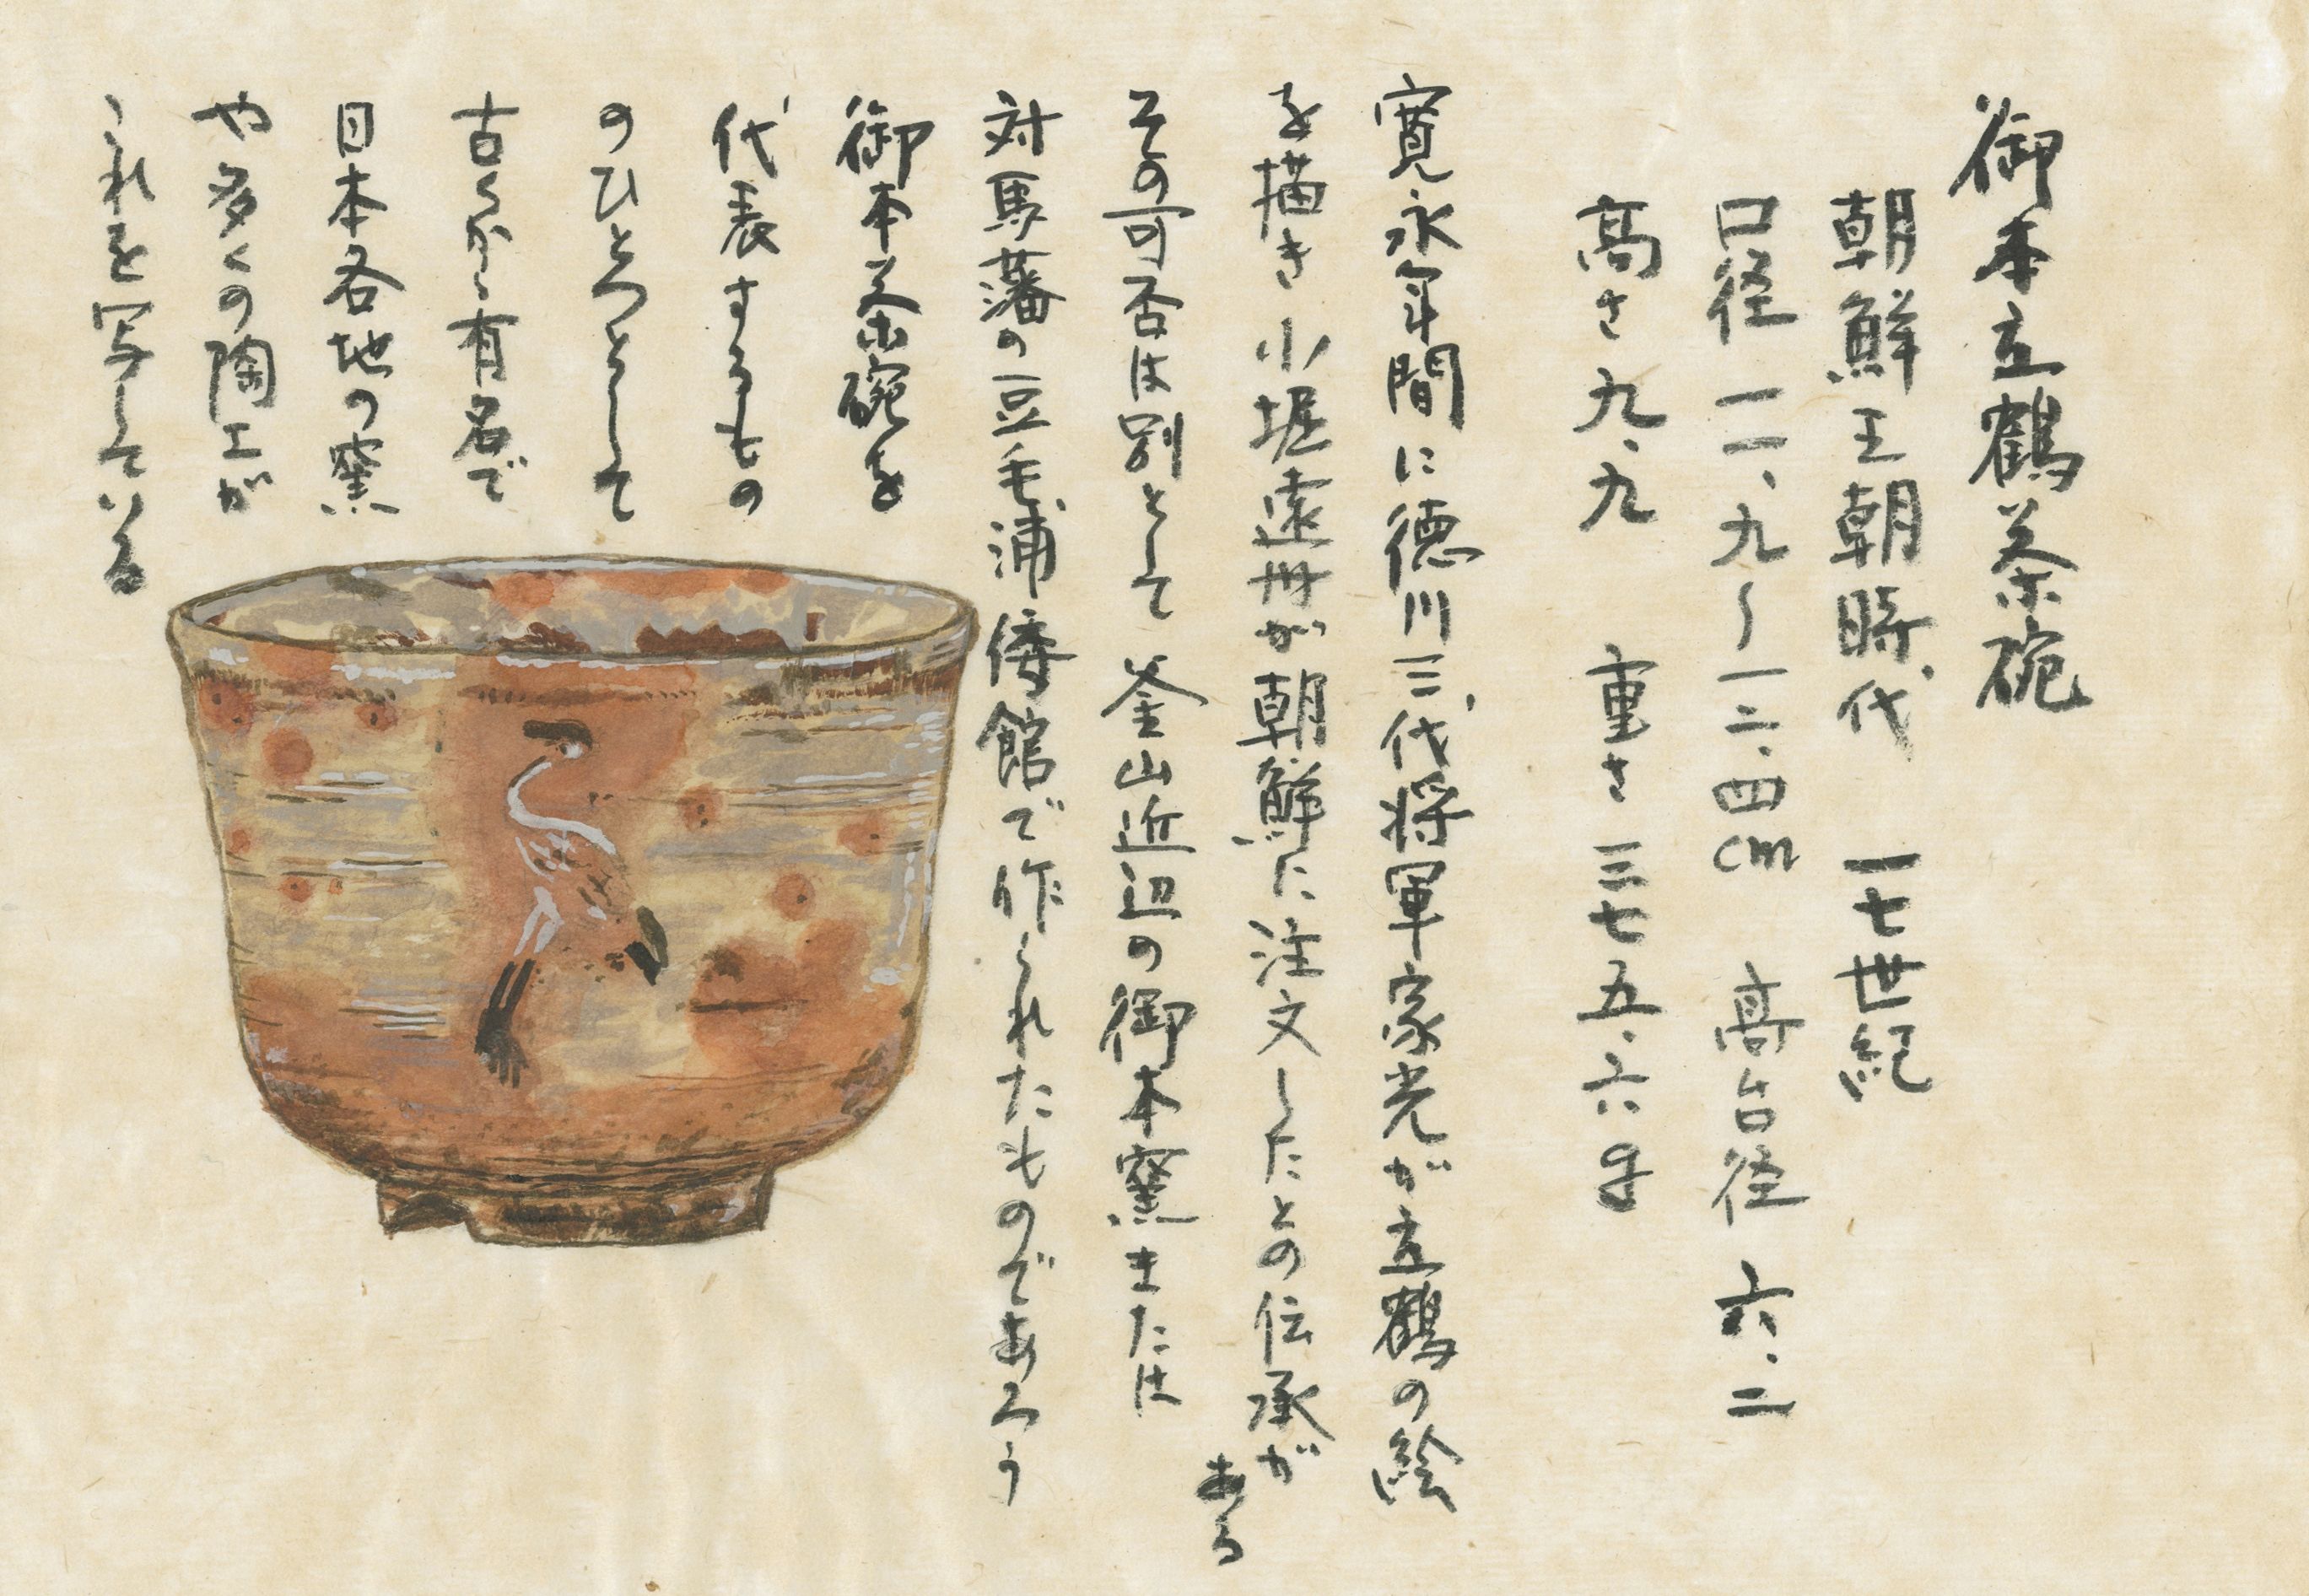 御本立鶴茶碗
朝鮮王朝時代 一七世紀
口径 一一、九〜一二、四cm 高台径 六、二
高さ 九、九 重さ 三七五、六g
寛永年間に徳川三代将軍家光が立鶴の絵
を描き 小堀遠州が朝鮮に注文したとの伝承が
ある
その可否は別として 釜山近辺の御本窯または
対馬藩の豆毛浦倭館で作られたものであろう
御本茶碗を
代表するもの
のひとつとして
古くから有名で
日本各地の窯
や多くの陶工が
これを写している